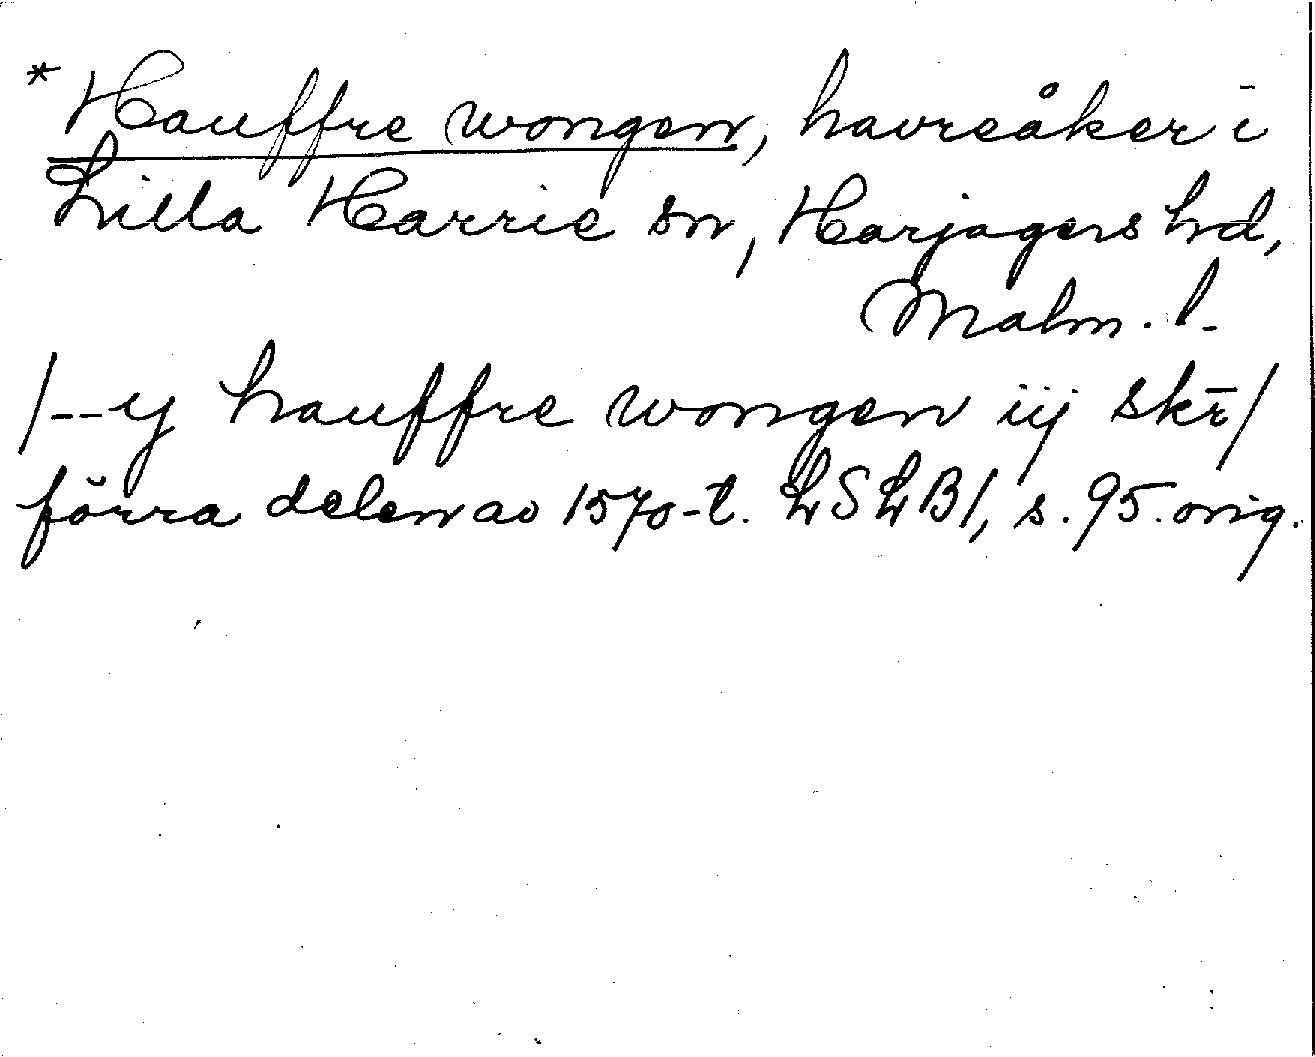 *Hauffre wongen, havreåker i
Lilla Harrie sn, Harjagers hd,
Malm. l.
/--y hauffre wongen iij skr̄/
förra delen av 1570-t. LSLB1, s. 95. orig.